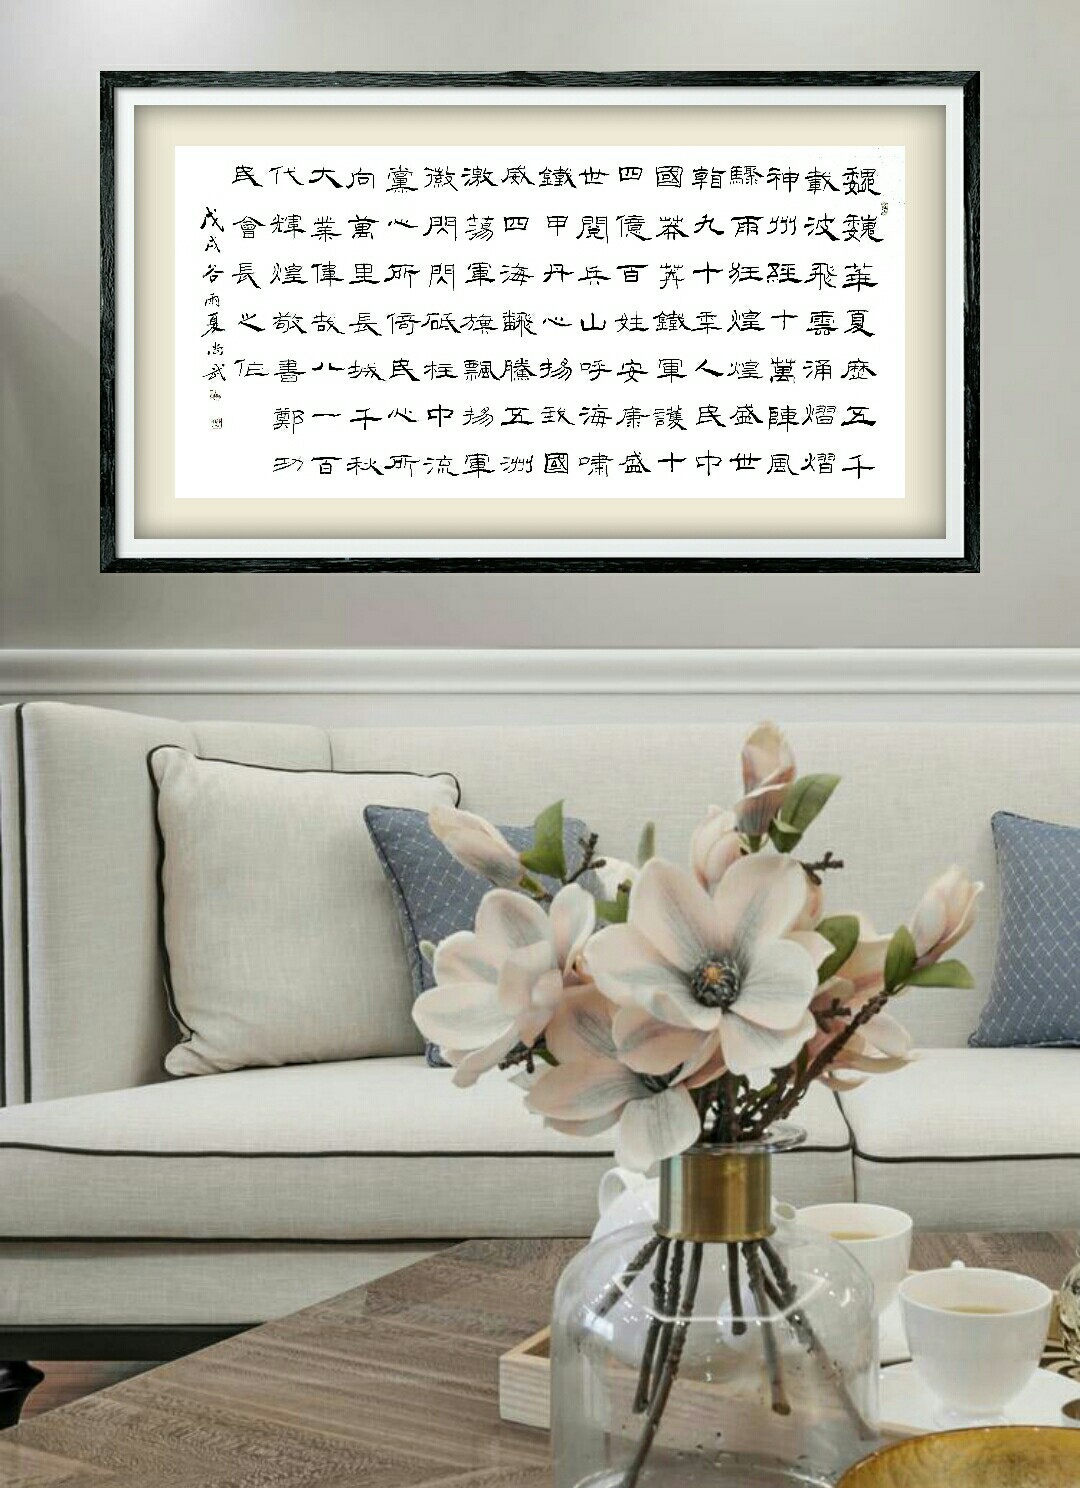 魏魏華夏歷五千
載波飛雲涌熠熠
神州經十萬陣風
驟雨狂煌煌盛世
九十年人民中
國莽莽鐵軍護十
四億百姓安康盛
世閱兵山呼海嘯
鐵甲丹心揚我國
威四海飜騰五洲
激蕩軍旗飄揚軍
徽閃閃砥柱中流
黨心所倚民心所
向萬里長城千秋
大業偉哉八一百
代輝煌敬書鄭功
民會長之作
戊戌谷雨夏尚武